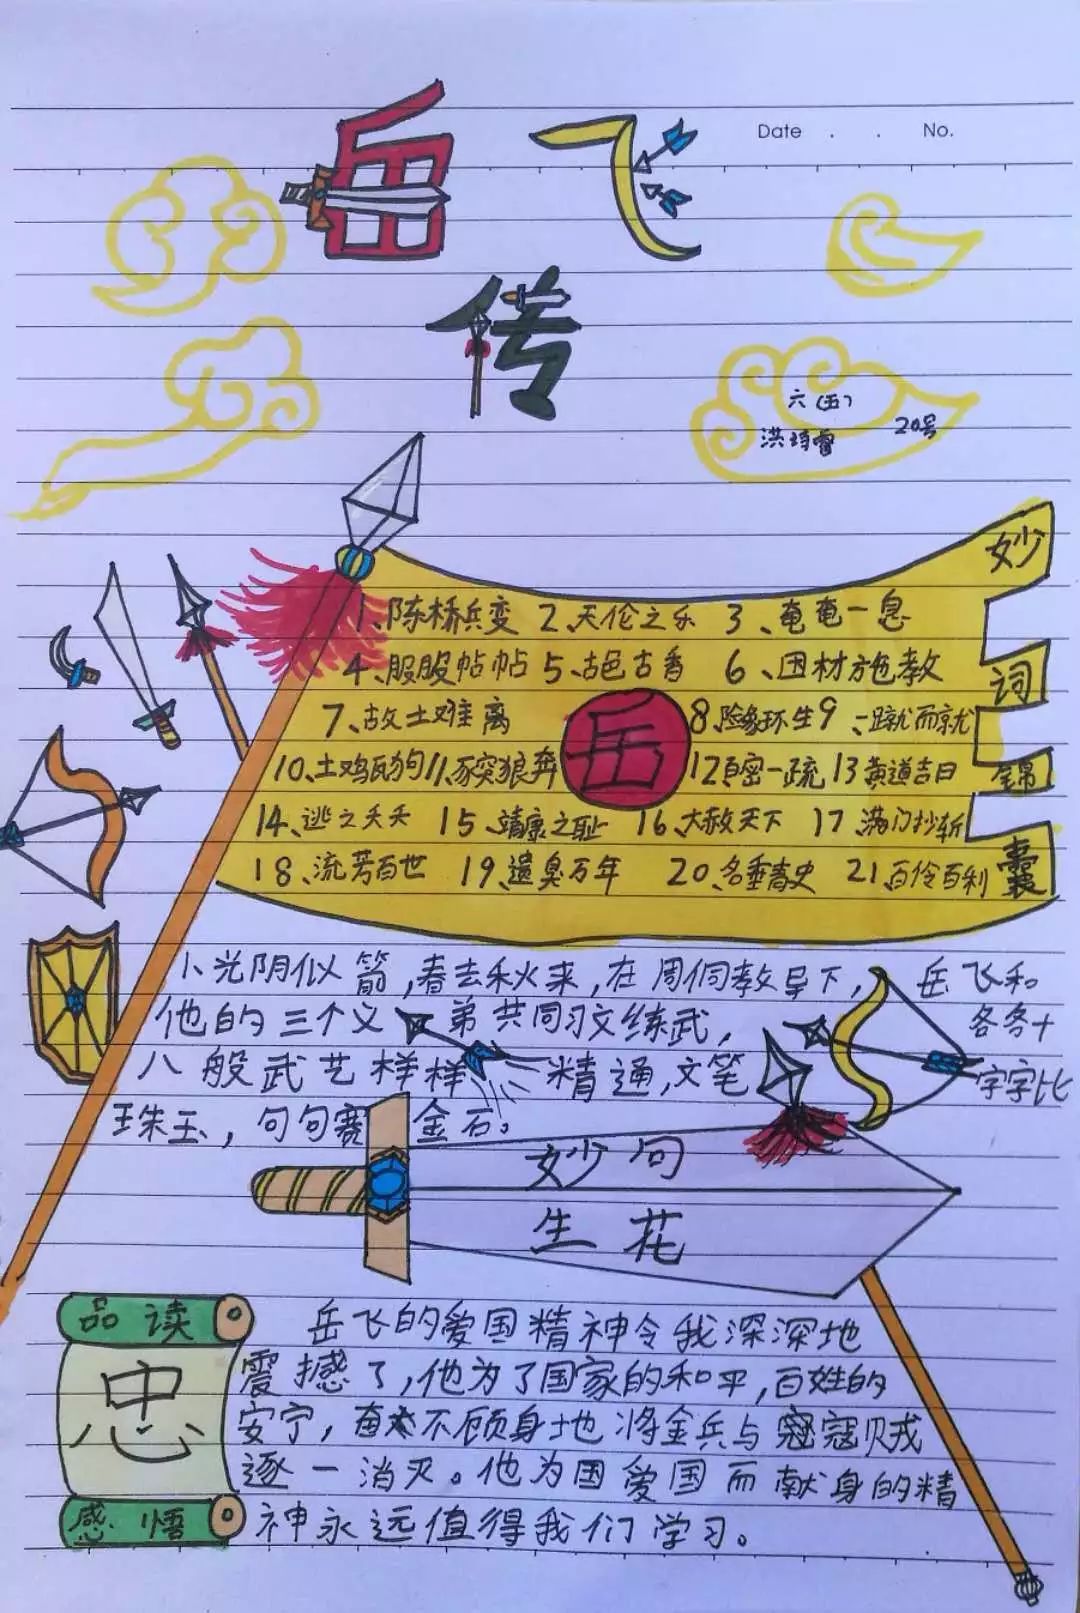 Date . . No.
岳飞
传
六(五)
洪 20号
妙词锦囊
1、陈桥兵变 2、天伦之乐 3、奄奄一息
4、服服帖帖 5、古色古香 6、因材施教
7、故土难离 8、险象环生 9、一蹴而就
10、土鸡瓦狗 11、豕突狼奔 12、百密一疏 13、黄道吉日
岳
14、逃之夭夭 15、靖康之耻 16、大赦天下 17、满门抄斩
18、流芳百世 19、遗臭万年 20、名垂青史 21、百伶百利
1、光阴似箭,春去秋来,在周侗教导下,岳飞和
他的三个义弟共同习文练武,各各十
八般武艺样样精通,文笔字字比
珠玉,句句赛金石。
妙句
生花
品读
忠
感悟
岳飞的爱国精神令我深深地
震撼了,他为了国家的和平,百姓的
安宁,奋不顾身地将金兵与寇贼
逐一消灭。他为国爱国而献身的精
神永远值得我们学习。